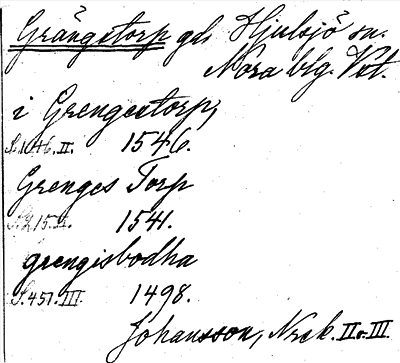 Grängstorp gd. Hjulsjö sn.
Nora blg. Vst.
i Grengestorp,
S. 146. II. 1546.
Grenges Torp
1541.
grengisbodha
S. 457. III. 1498.
Johansson, Nzck. II o. III.